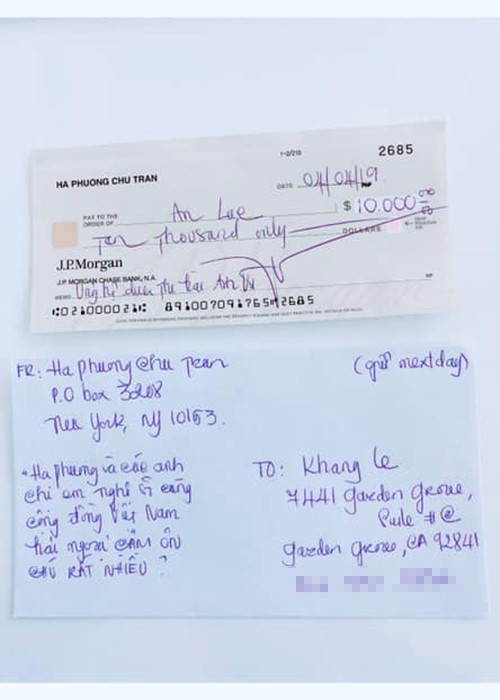 1-2/210
2685
HA PHUONG CHU TRAN
DATE 04/04/19
PAY TO THE
ORDER OF An Lac
$ 10.000.00
Ten thousand only
DOLLARS
J.P.Morgan
J.P. MORGAN CHASE BANK, N.A.
MEMO Ủng hộ
021000021 891007091765 2685
FR: Ha phuong Chu Tran
P.O box 3208
New York, NY 10153.
(gửi next day)
"Ha phuong và các anh
chị em nghệ sĩ cùng
cộng đồng Việt Nam
hải ngoại CÁM ƠN
CHÚ RẤT NHIỀU
TO: Khang le
7441 garden grove,
garden grove, CA 92841